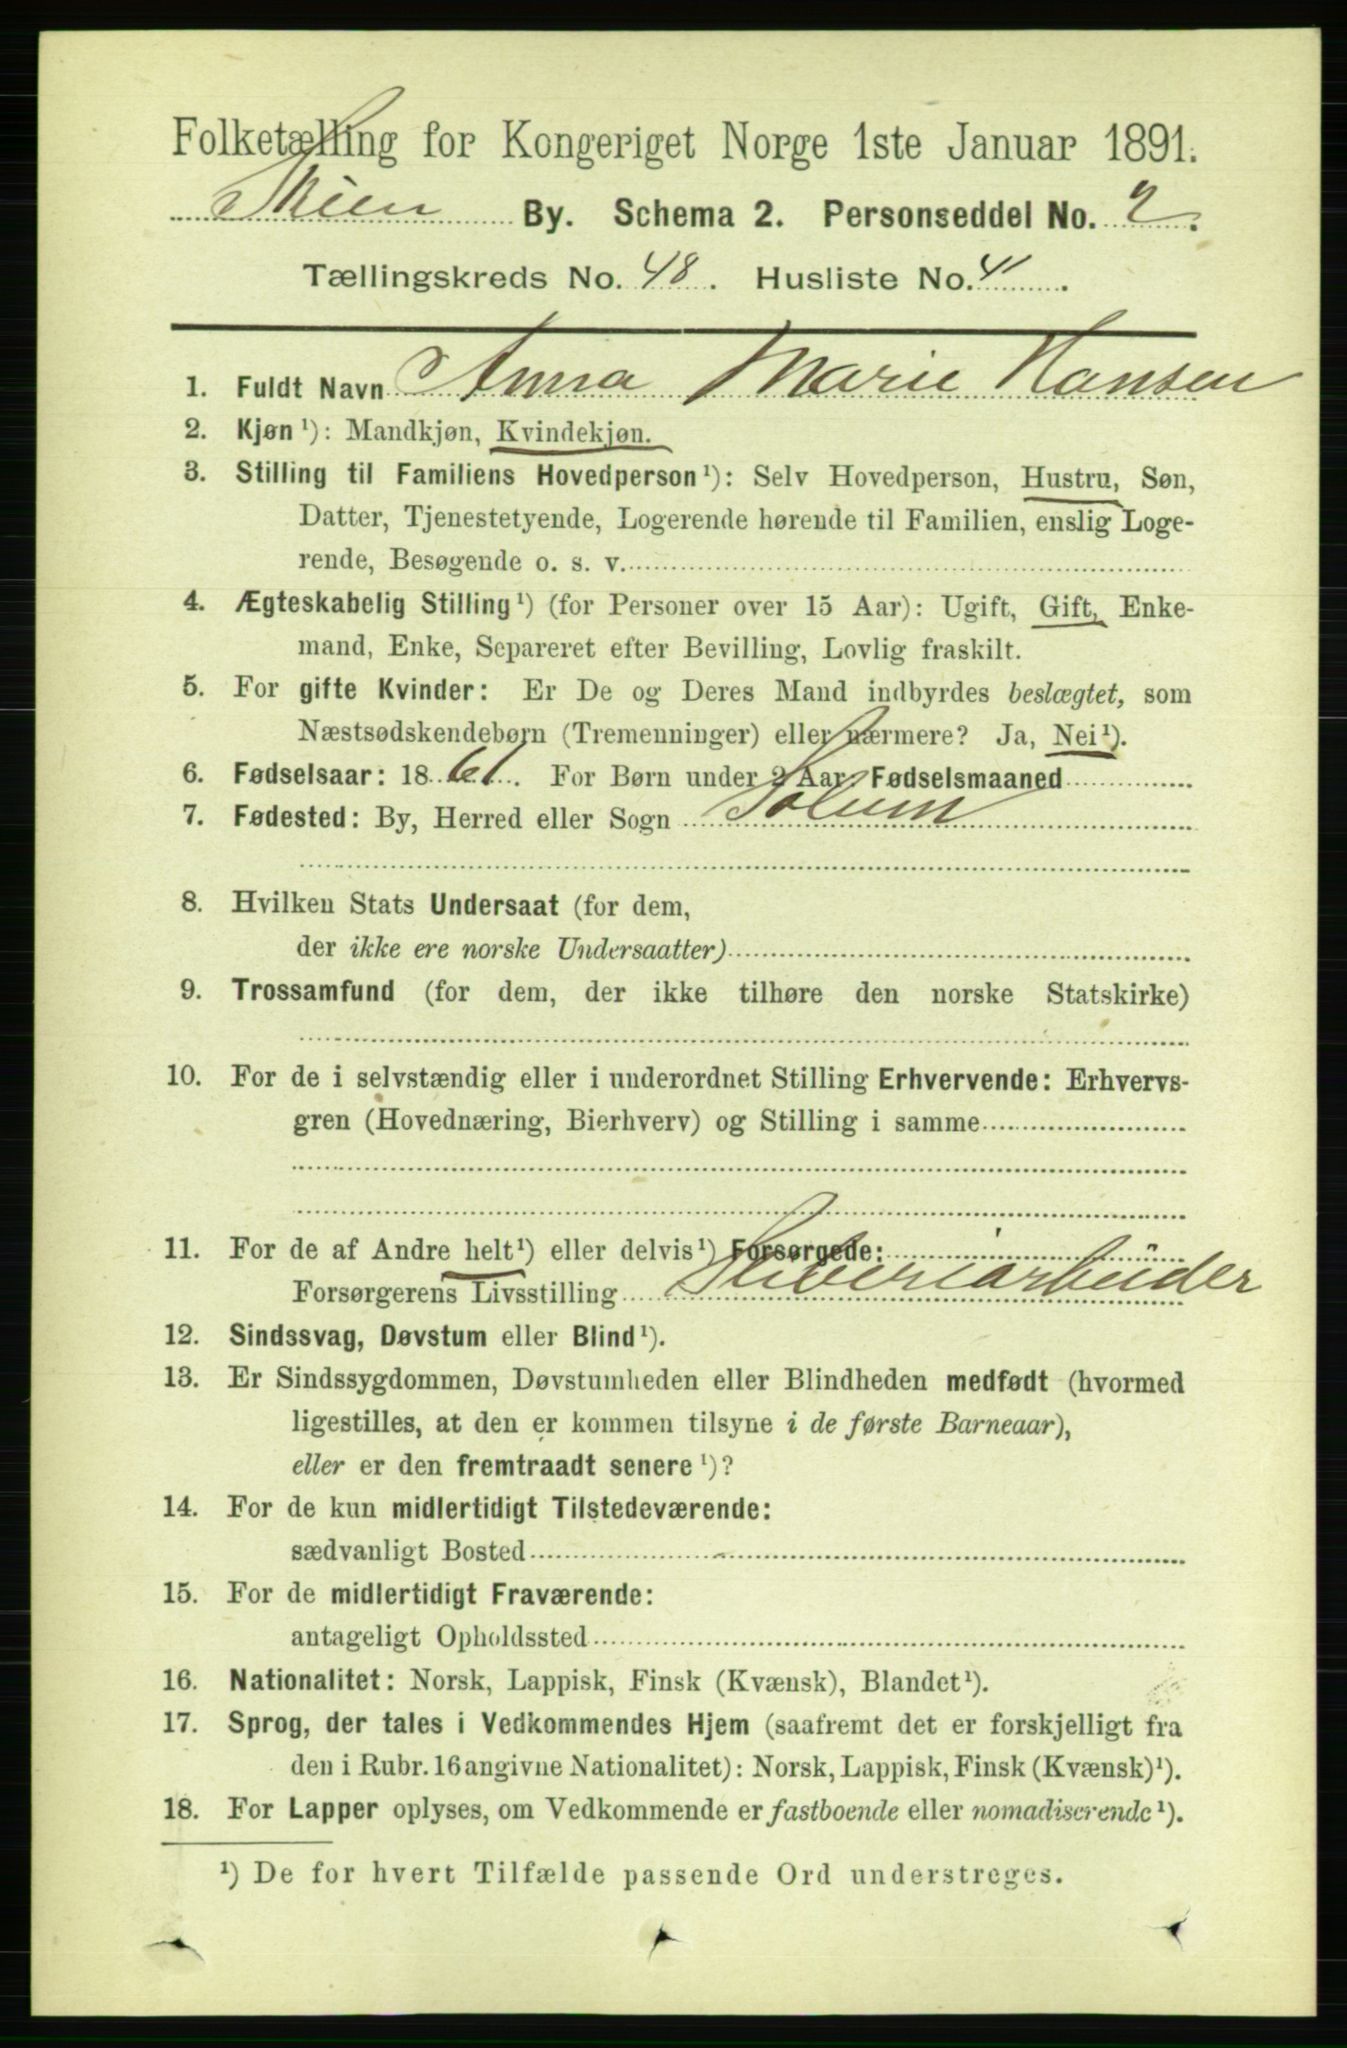 Folketælling for Kongeriget Norge 1ste Januar 1891.
Skien By. Schema 2. Personseddel No. 2.
Tællingskreds No. 48. Husliste No. 4.
1. Fuldt Navn Anna Marie Hansen
2. Kjøn¹): Mandkjøn, Kvindekjøn.
3. Stilling til Familiens Hovedperson¹): Selv Hovedperson, Hustru, Søn,
Datter, Tjenestetyende, Logerende hørende til Familien, enslig Loge-
rende, Besøgende o. s. v.
4. Ægteskabelig Stilling¹) (for Personer over 15 Aar): Ugift, Gift, Enke-
mand, Enke, Separeret efter Bevilling, Lovlig fraskilt.
5. For gifte Kvinder: Er De og Deres Mand indbyrdes beslægtet, som
Næstsødskendebørn (Tremenninger) eller nærmere? Ja, Nei¹).
6. Fødselsaar: 1861. For Børn under 2 Aar: Fødselsmaaned
7. Fødested: By, Herred eller Sogn Solum
8. Hvilken Stats Undersaat (for dem,
der ikke ere norske Undersaatter)
9. Trossamfund (for dem, der ikke tilhøre den norske Statskirke)
10. For de i selvstændig eller i underordnet Stilling Erhvervende: Erhvervs-
gren (Hovednæring, Bierhverv) og Stilling i samme
11. For de af Andre helt¹) eller delvis¹) Forsørgede:
Forsørgerens Livsstilling Sliberiarbeider
12. Sindssvag, Døvstum eller Blind¹).
13. Er Sindssygdommen, Døvstumheden eller Blindheden medfødt (hvormed
ligestilles, at den er kommen tilsyne i de første Barneaar),
eller er den fremtraadt senere¹)?
14. For de kun midlertidigt Tilstedeværende:
sædvanligt Bosted
15. For de midlertidigt Fraværende:
antageligt Opholdssted
16. Nationalitet: Norsk, Lappisk, Finsk (Kvænsk), Blandet¹).
17. Sprog, der tales i Vedkommendes Hjem (saafremt det er forskjelligt fra
den i Rubr. 16 angivne Nationalitet): Norsk, Lappisk, Finsk (Kvænsk)¹).
18. For Lapper oplyses, om Vedkommende er fastboende eller nomadiserende¹).
¹) De for hvert Tilfælde passende Ord understreges.